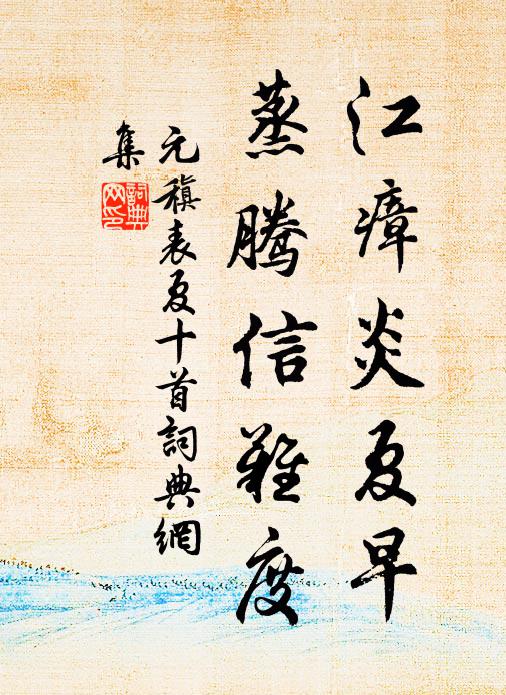 江瘴炎夏早
蒸騰信難度
元稹表夏十首詞典網
集
詞典網印